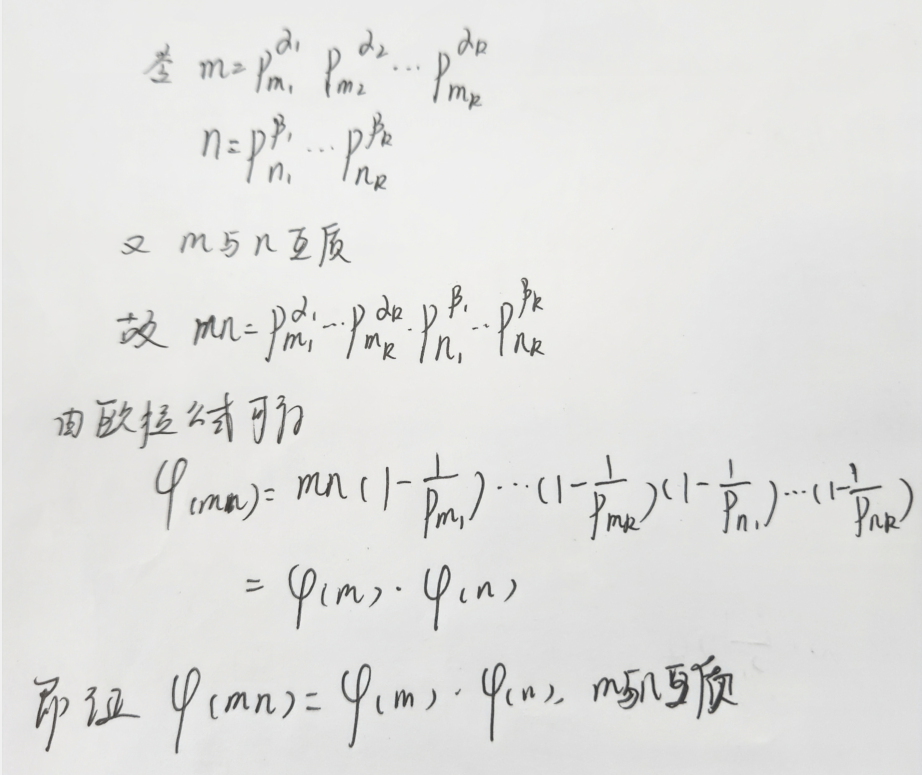 若 m=p_{m_1}^{α_1} p_{m_2}^{α_2} ⋯ p_{m_k}^{α_k}
n=p_{n_1}^{β_1} ⋯ p_{n_k}^{β_k}
又 m与n互质
故 mn=p_{m_1}^{α_1}⋯p_{m_k}^{α_k}·p_{n_1}^{β_1}⋯p_{n_k}^{β_k}
由欧拉公式可得
φ(mn)=mn(1-\frac{1}{p_{m_1}})⋯(1-\frac{1}{p_{m_k}})(1-\frac{1}{p_{n_1}})⋯(1-\frac{1}{p_{n_k}})
=φ(m)·φ(n)
即证 φ(mn)=φ(m)·φ(n), m与n互质